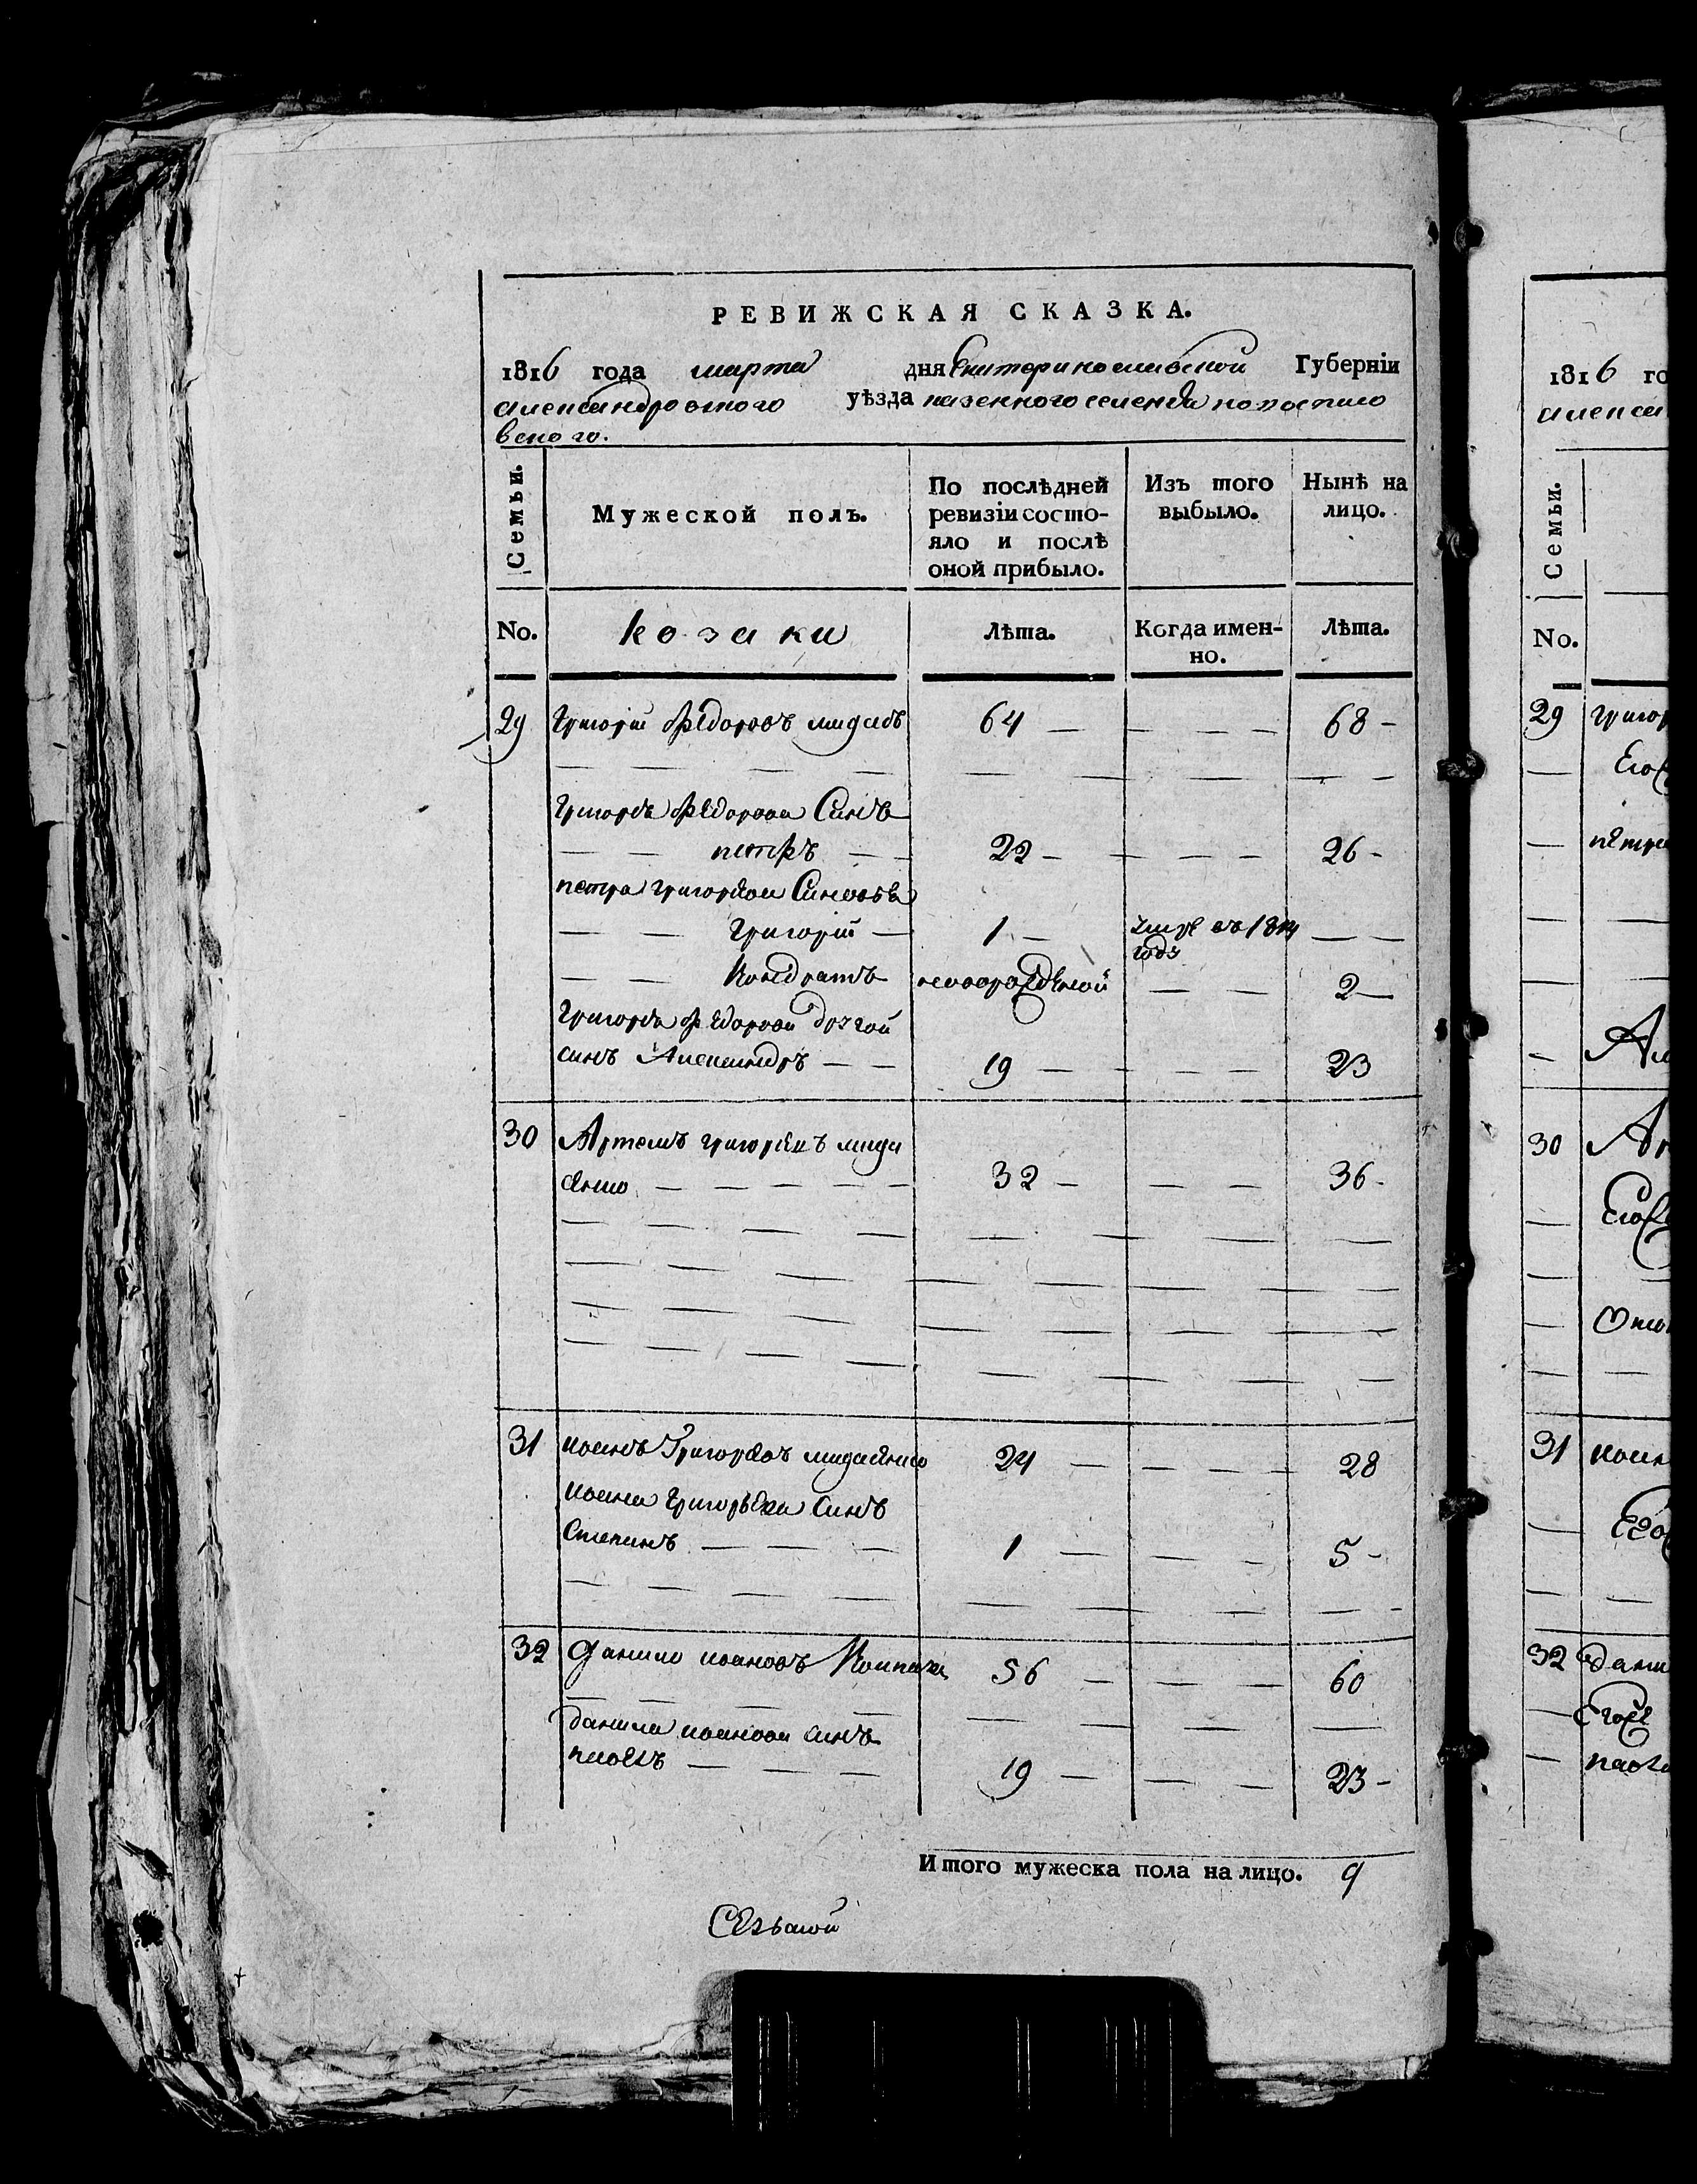 РЕВИЖСКАЯ СКАЗКА.
1816 года марта дня Екатеринославской Губерніи
александровского уѣзда казенного селения
вского.
Семьи.
Мужеской полъ.
По послѣдней
ревизіи состо-
яло и послѣ
оной прибыло.
Изъ того
выбыло.
Нынѣ на
лицо.
No. козаки Лѣта. Когда имен-
но. Лѣта.
29 Григорій Федоровъ 64 — — — — 68 —
Григорія Федорова Синъ
— — петръ — — 22 — — — — 26 —
петра григориева Синовья
— — Григорій — 1 — умре въ 1814 — —
году
— — Кондратъ новорожденой — — 2 —
Григория Федорова другой
синъ Александръ — — 19 — — — — 23
30 Артемъ григориевъ
32 — — — 36 -
31 иоанъ Григориевъ 24 — — — — 28
иоана григорьева синъ
Степанъ — — — 1 — — — 5 -
32 Данило иоановъ 56 — — — 60
данила иоанова синъ
павелъ — — — 19 — — — 23 -
Итого мужеска пола на лицо. 9
1816 го
алекса
Семьи.
No.
29 григор
Его
петра
Ал
30 Ар
Его
31 иоан
Его
32 дани
Его
павла